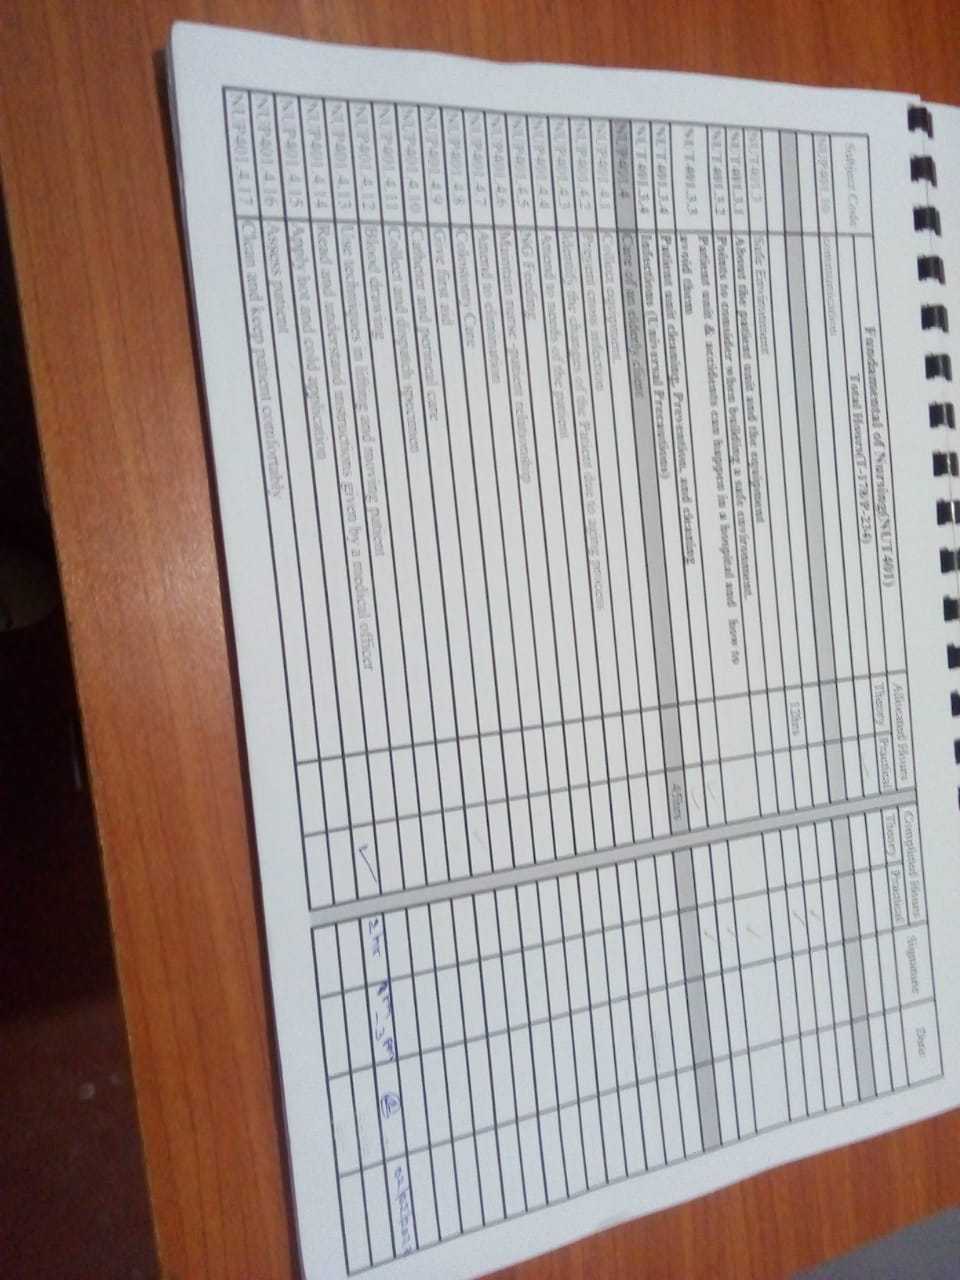 Fundamental of Nursing(NUT401)
Subject Code Total Hours(T-178/P-234) Allocated Hours Completed Hours Signature Date
Theory Practical Theory Practical
NUP401.10 communication
12hrs
NUT401.3 Safe Environment
NUT401.3.1 About the patient unit and the equipment
NUT401.3.2 Points to consider when building a safe environment.
NUT401.3.3 Patient unit & accidents can happen in a hospital and how to
avoid them
NUT401.3.4 Patient unit cleaning, Prevention, and cleaning
NUT401.3.4 Infections (Universal Precautions)
NUP401.4 Care of an elderly client 45hrs
NUP401.4.1 Collect equipment
NUP401.4.2 Prevent cross infection
NUP401.4.3 Identify the changes of the Patient due to aging process
NUP401.4.4 Attend to needs of the patient
NUP401.4.5 NG Feeding
NUP401.4.6 Maintain nurse -patient relationship
NUP401.4.7 Attend to elimination
NUP401.4.8 Colostomy Care
NUP401.4.9 Give first aid
NUP401.4.10 Catheter and perineal care
NUP401.4.11 Collect and dispatch specimen
NUP401.4.12 Blood drawing
NUP401.4.13 Use techniques in lifting and moving patient
NUP401.4.14 Read and understand instructions given by a medical officer
NUP401.4.15 Apply hot and cold application
NUP401.4.16 Assess patient
NUP401.4.17 Clean and keep patient comfortably